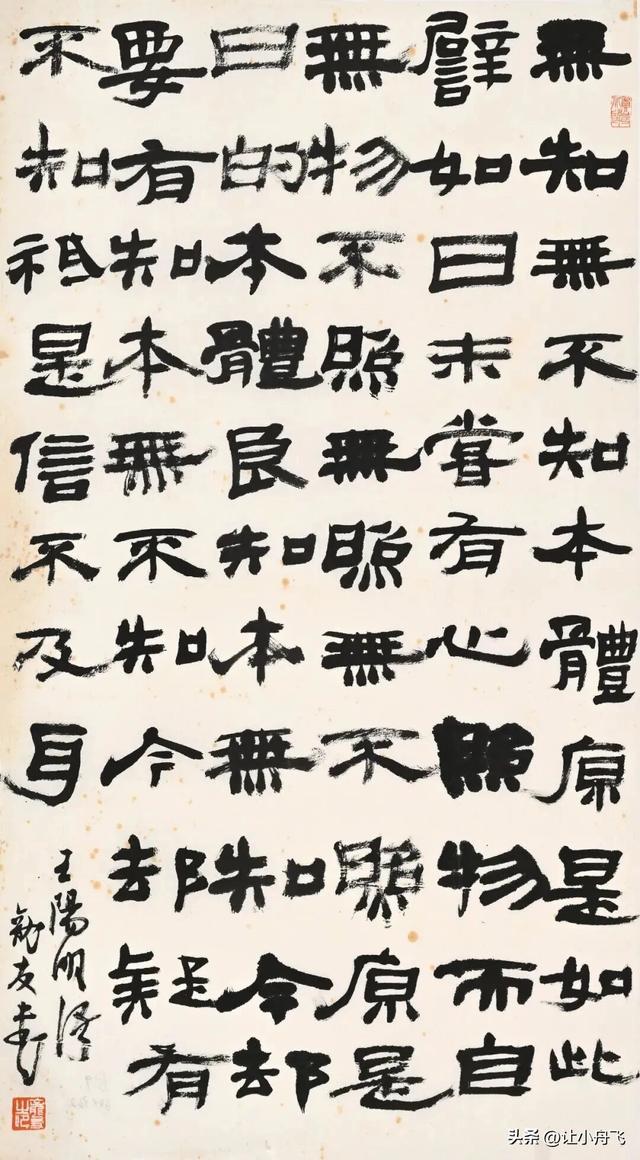 無知無不知本體原是如此
譬如日未嘗有心照物而自
無物不照無照無不照原是
日的本體良知本無知今却
要有知本無不知今却疑有
不知祗是信不及耳
王陽明
友書
头条 @让小舟飞